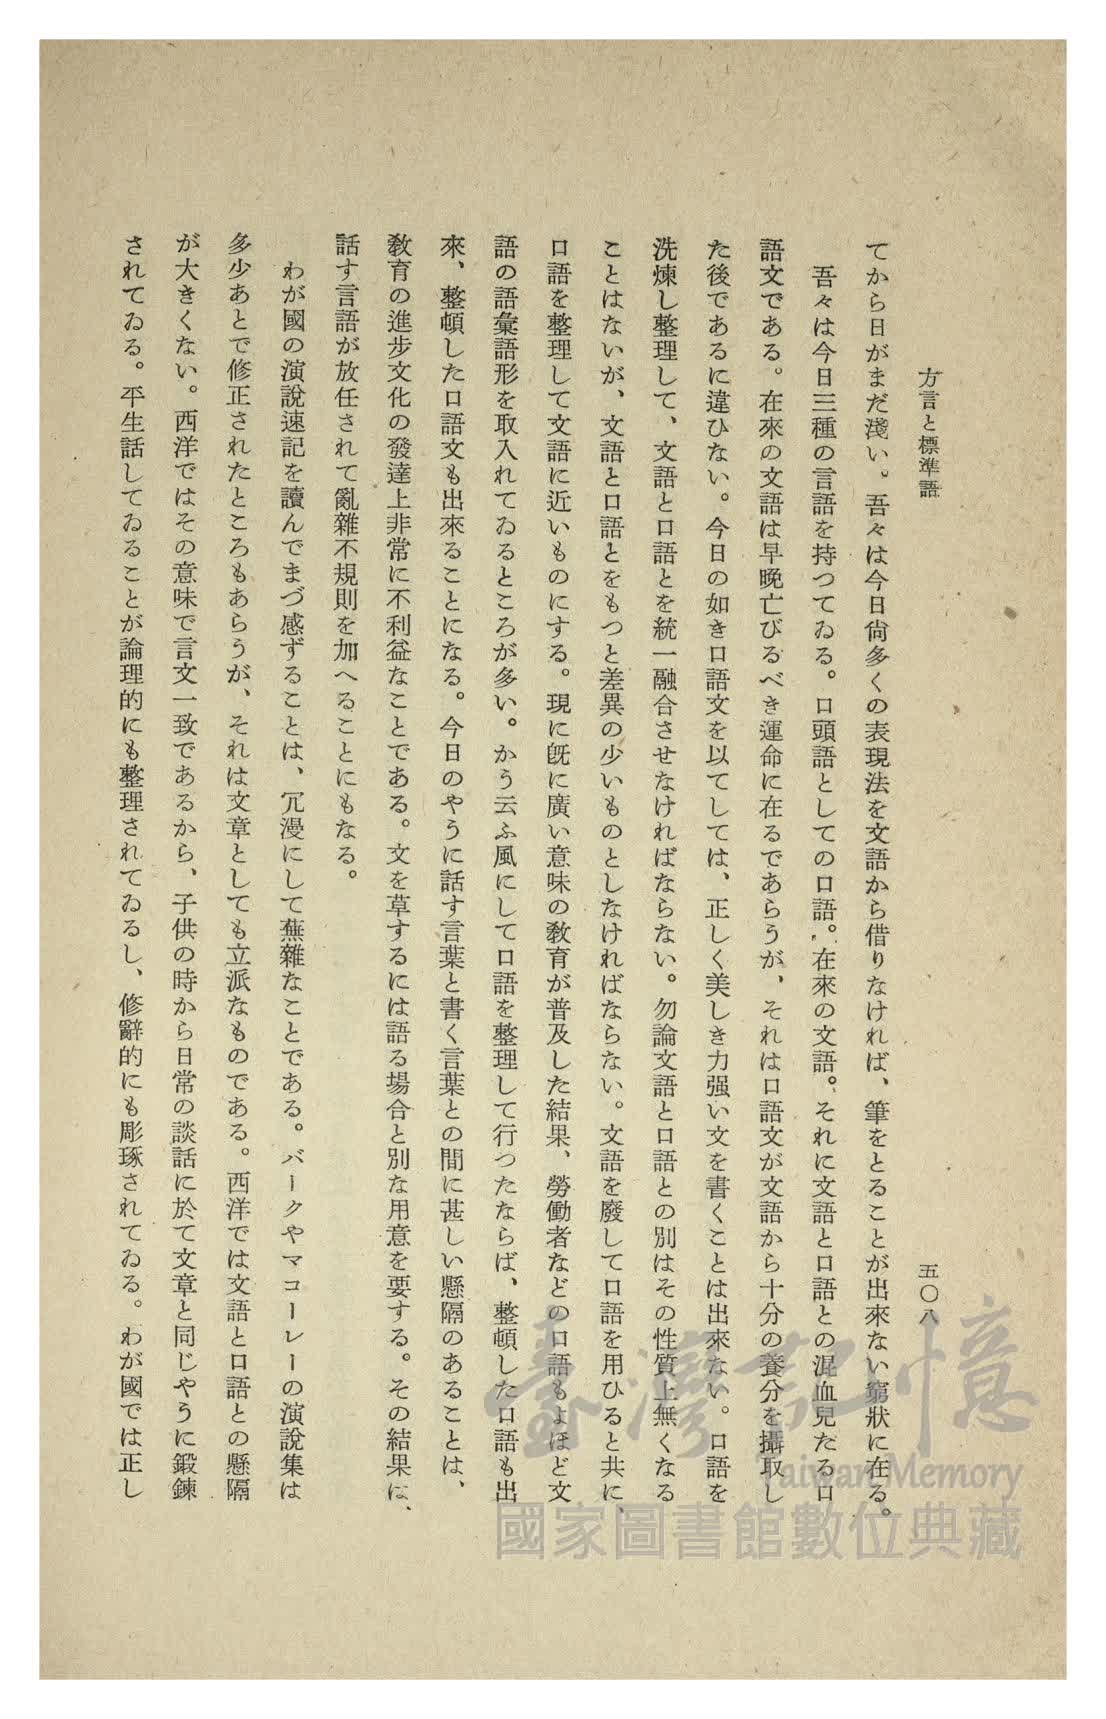 方言と標準語
五〇八
てから日がまだ淺い。吾々は今日尙多くの表現法を文語から借りなければ、筆をとることが出來ない窮狀に在る。
吾々は今日三種の言語を持つてゐる。口頭語としての口語。在來の文語。それに文語と口語との混血兒たる口
語文である。在來の文語は早晩亡びるべき運命に在るであらうが、それは口語文が文語から十分の養分を攝取し
た後であるに違ひない。今日の如き口語文を以てしては、正しく美しき力强い文を書くことは出來ない。口語を
洗煉し整理して、文語と口語とを統一融合させなければならない。勿論文語と口語との別はその性質上無くなる
ことはないが、文語と口語とをもつと差異の少いものとしなければならない。文語を廢して口語を用ひると共に、
口語を整理して文語に近いものにする。現に旣に廣い意味の敎育が普及した結果、勞働者などの口語もよほど文
語の語彙語形を取入れてゐるところが多い。かう云ふ風にして口語を整理して行つたならば、整頓した口語も出
來、整頓した口語文も出來ることになる。今日のやうに話す言葉と書く言葉との間に甚しい懸隔のあることは、
敎育の進步文化の發達上非常に不利益なことである。文を草するには語る場合と別な用意を要する。その結果は、
話す言語が放任されて亂雜不規則を加へることにもなる。
わが國の演說速記を讀んでまづ感ずることは、冗漫にして蕪雜なことである。バークやマコーレーの演說集は
多少あとで修正されたところもあらうが、それは文章としても立派なものである。西洋では文語と口語との懸隔
が大きくない。西洋ではその意味で言文一致であるから、子供の時から日常の談話に於て文章と同じやうに鍛鍊
されてゐる。平生話してゐることが論理的にも整理されてゐるし、修辭的にも彫琢されてゐる。わが國では正し
臺灣記憶
Taiwan Memory
國家圖書館數位典藏